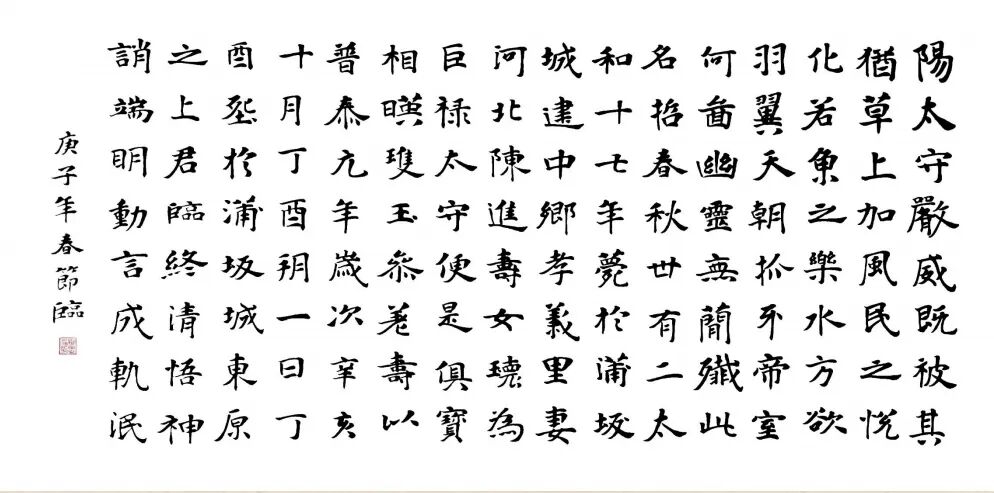 陽太守嚴威既被其
猶草上加風民之悅
化若魚之樂水方欲
羽翼天朝抓牙帝室
何啚幽靈無簡殲此
名哲春秋卅有二太
和十七年薨於蒲坂
城建中鄉孝義里妻
河北陳進壽女瓌為
巨祿太守便是俱寶
相暎瓊玉參差壽以
普泰元年歲次辛亥
十月丁酉朔一日丁
酉葬於蒲坂城東原
之上君臨終清悟神
誚端明動言成軌泯
庚子年春節臨